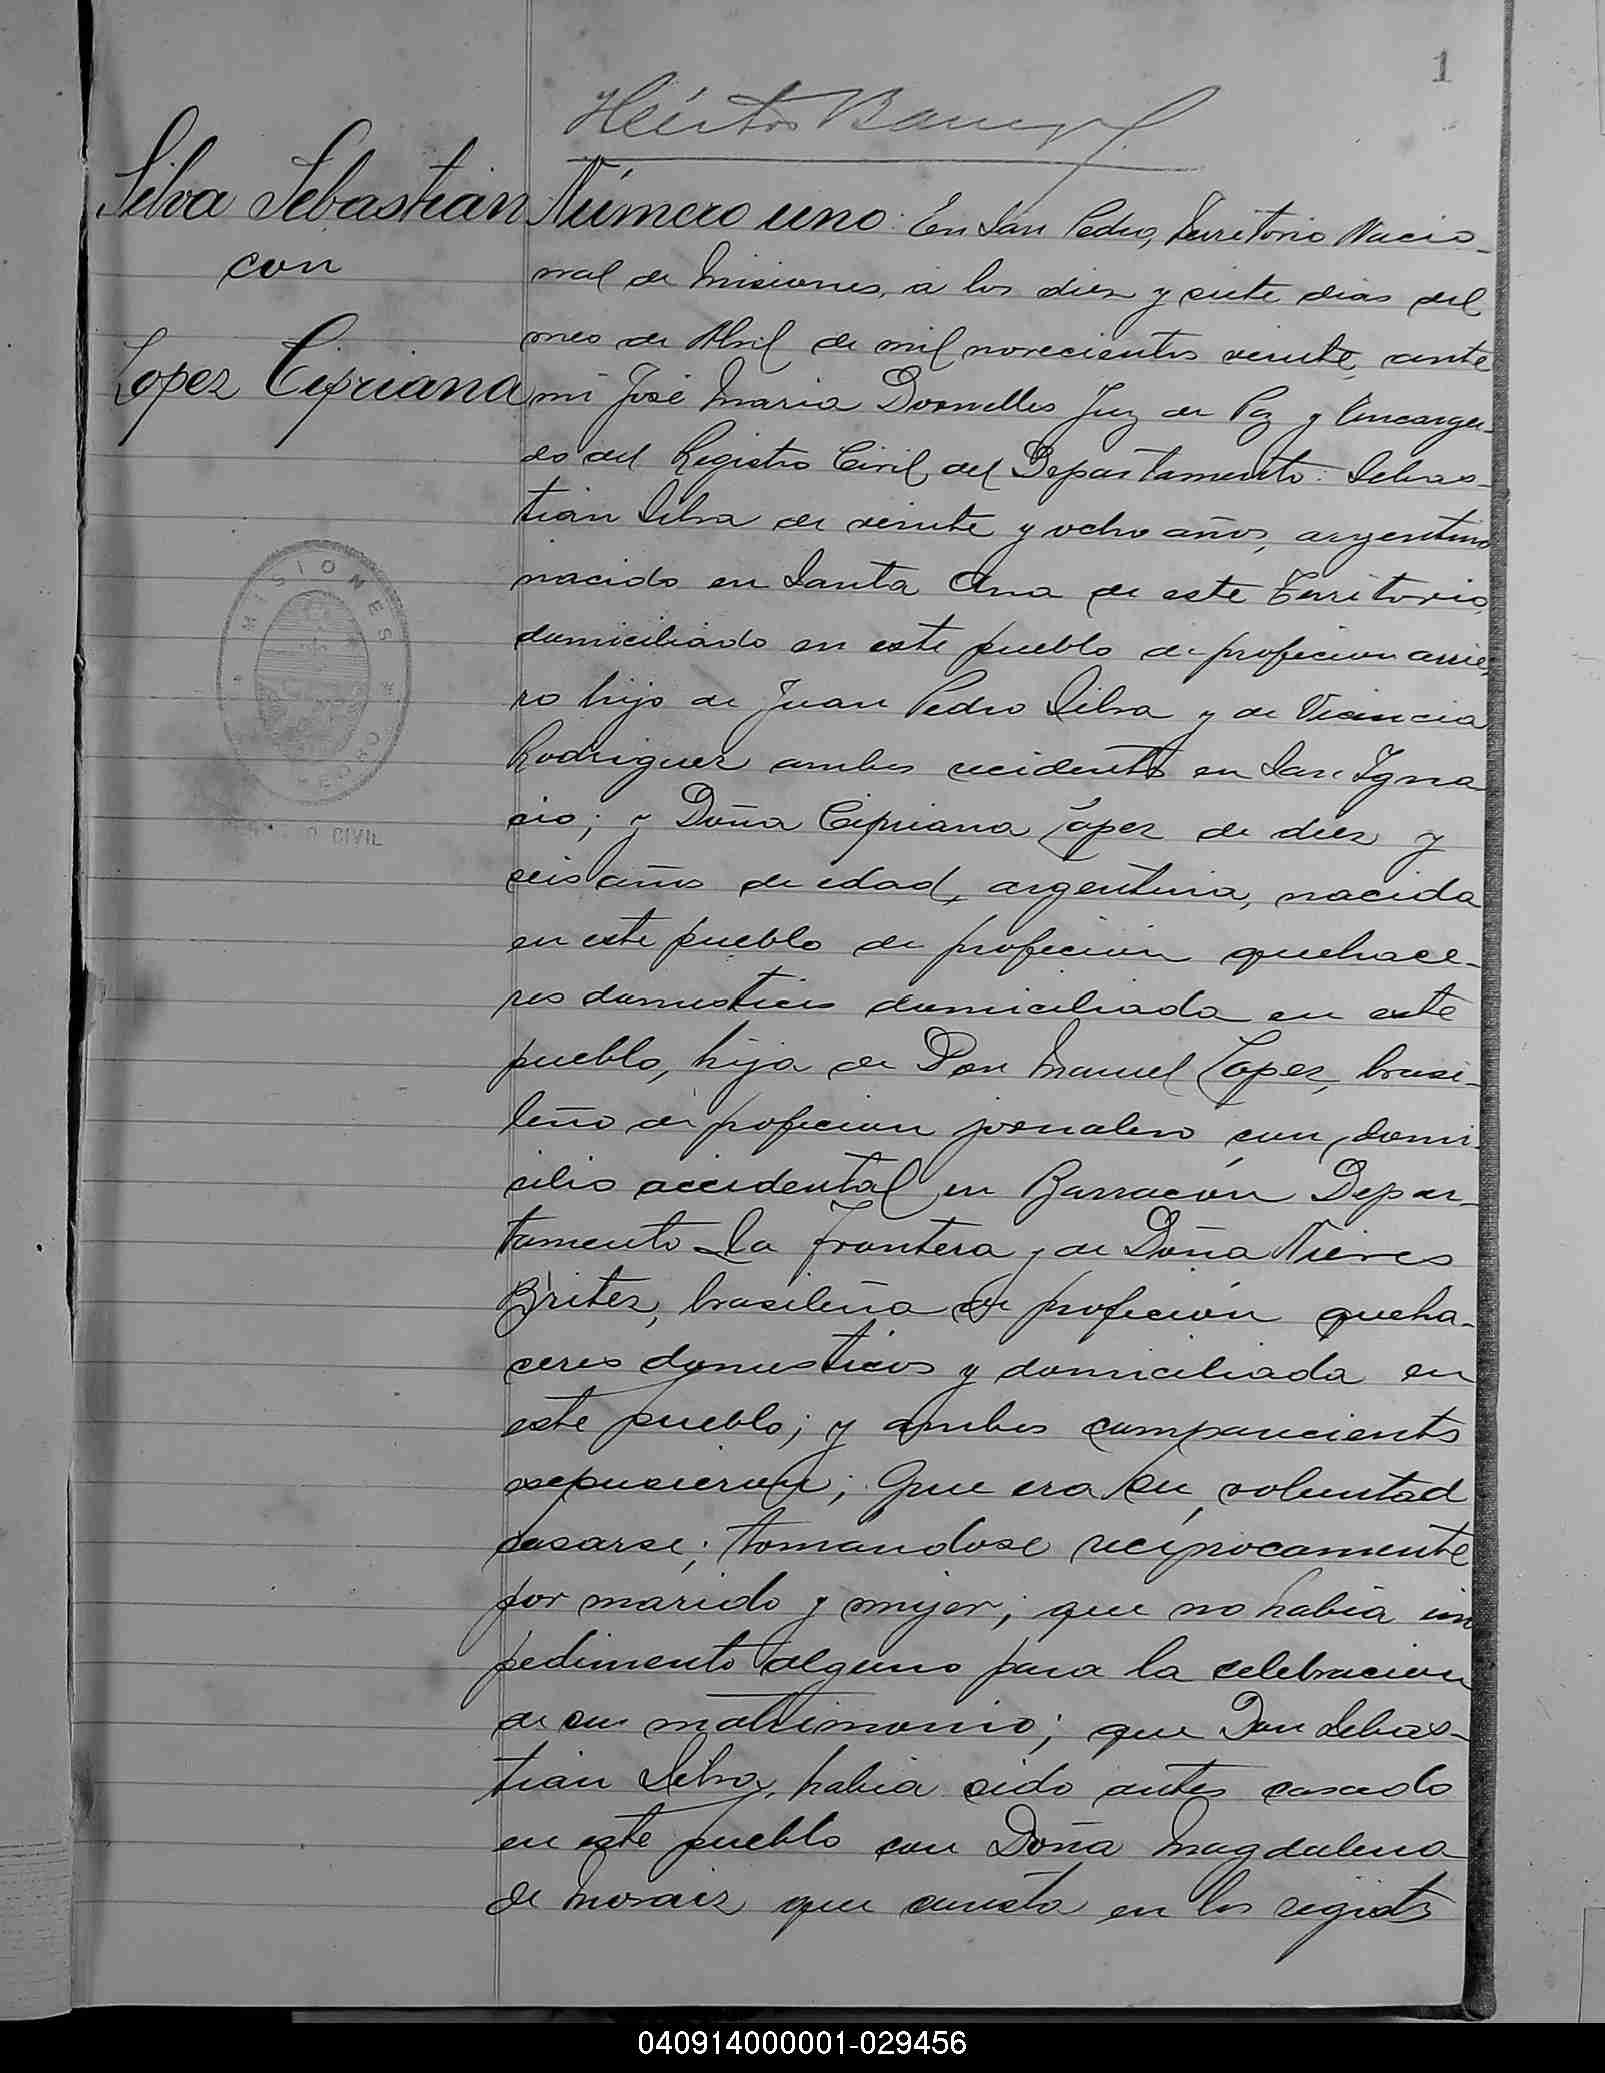 1
Silva Sebastián
con
Lopez Cipriana
MISIONES
CIVIL
Número uno. En San Pedro, Territorio Nacio-
nal de Misiones, a los diez y siete dias del
mes de Abril de mil novecientos veinte, ante
mi José Maria Dornelles Juez de Paz y Encarga-
do del Registro Civil del Departamento: Sebas-
tián Silva de veinte y ocho años, argentino
nacido en Santa Ana de este Territorio,
domiciliado en este pueblo de profecion arrie-
ro hijo de Juan Pedro Silva y de
Rodriguez ambos recidentes en San Igna
cio; y Doña Cipriana López de diez y
seis años de edad, argentina, nacida
en este pueblo de profecion quehace-
res domesticos domiciliada en este
pueblo, hija de Don Manuel Lopez, brasi-
leño de profecion jornalero con domi-
cilio accidental en Barracón Depar-
tamento La Frontera y de Doña Nieves
Britez, brasileña de profeción queha-
ceres domesticos y domiciliada en
este pueblo; y ambos comparecientes
expusieron; Que era su voluntad
casarse; tomandose recíprocamente
por marido y mujer; que no había im
pedimento alguno para la celebracion
de su matrimonio; que Don Sebas-
tián Silva, habia sido antes casado
en este pueblo con Doña Magdalena
de Moraez que consta en los registros
040914000001-029456